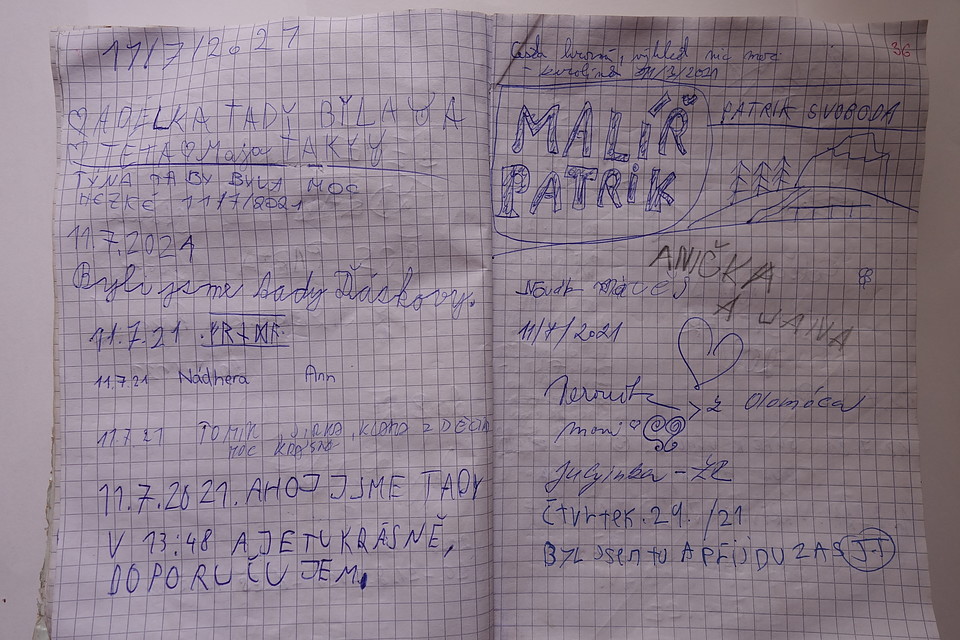 11/7/2021
ADELKA TADY BYLA A
MÁJA TAKY
BYLA MOC
HEZKÉ 11/7/2021
11.7.2021
Byli jsme tady Ďáskovy.
11.7.21
11.7.21 Nádhera Ann
11.7.21 TOMÍK, JIRKA, KLÁRA Z DĚČÍN
MOC KRÁSNÉ
11.7.2021. AHOJ JSME TADY
V 13:48 A JE TU KRÁSNĚ,
DOPORUČUJEM,
36
Cesta hrozná, výhled nic moc
- Karolína 11/3/2021
MALÍŘ
PATRIK
PATRIK SVOBODA
ANIČKA
A
Novák
11/7/2021
moni
z Olomóca
čtvrtek 29. /21
BYL JSEM TU A PŘIJDU ZAS J.T